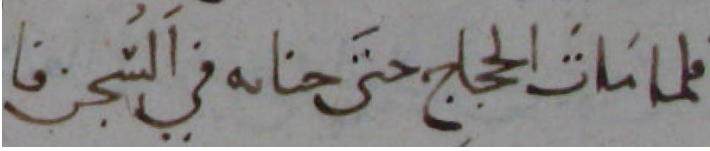 فلما مات الحجاج حتى حنانه في السجن فا